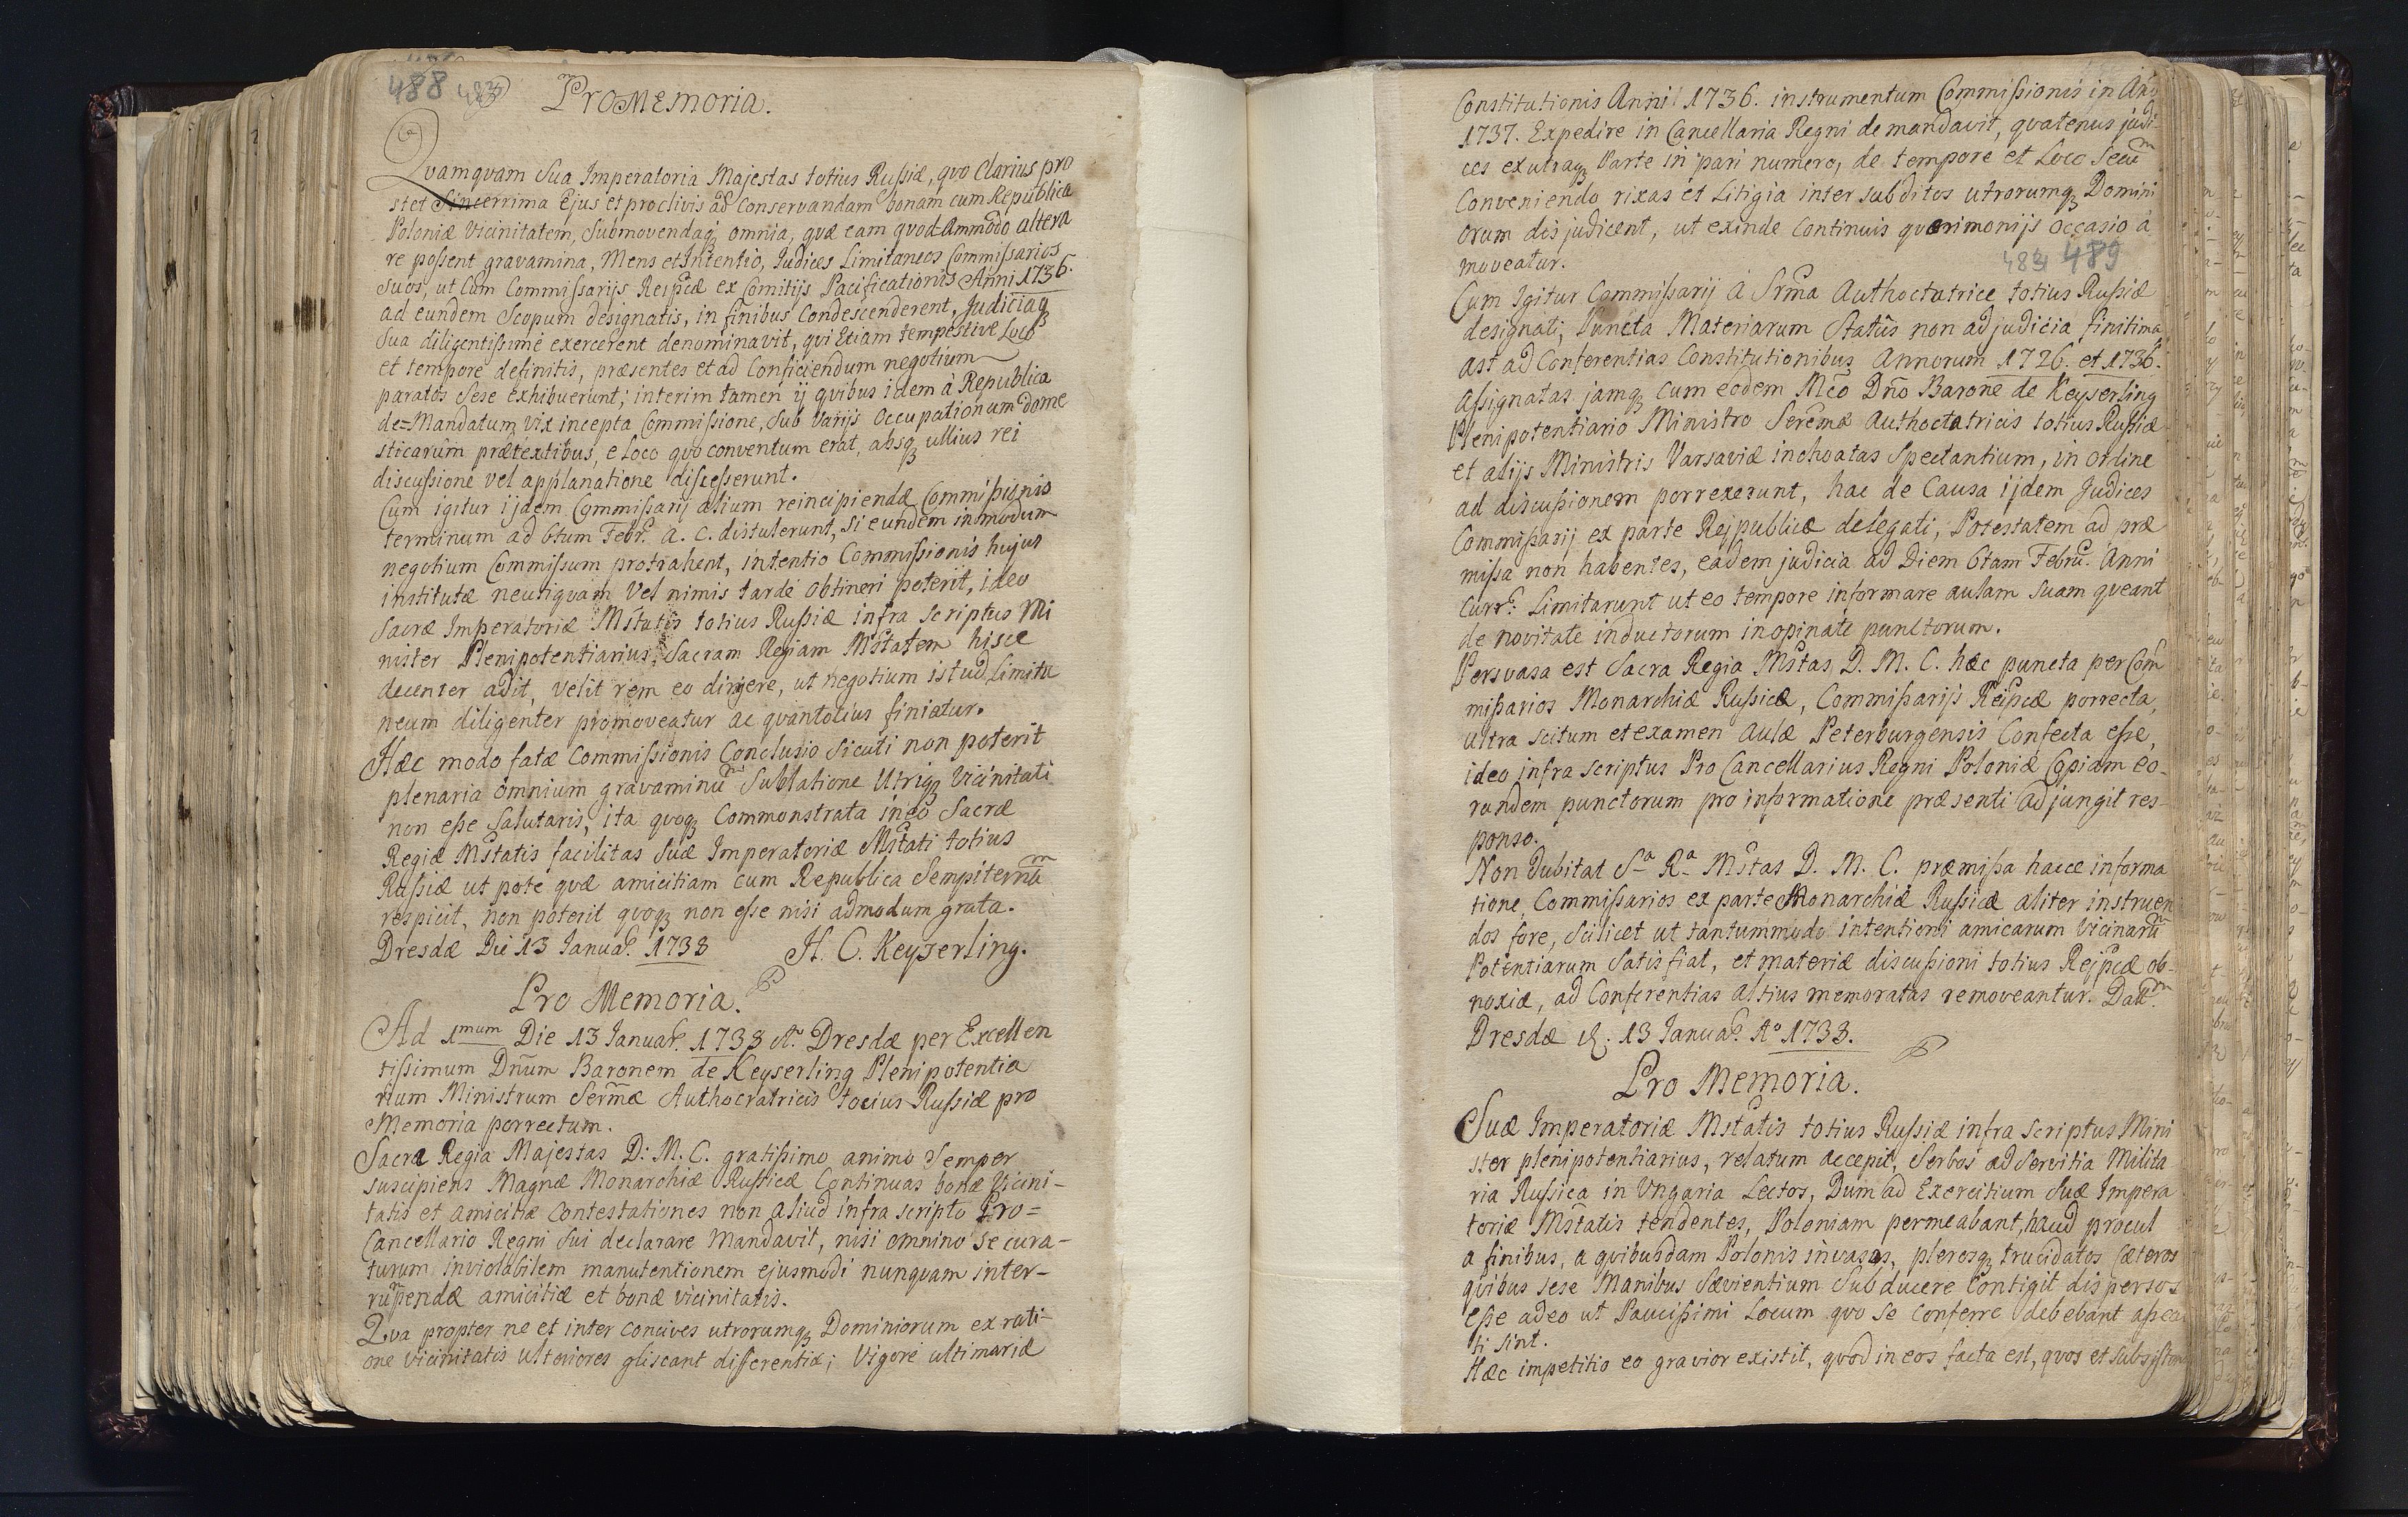 488 483
ProMemoria.
Quamquam Sua Imperatoria Majestas totius Russiæ, quo clarius pro
stet sincerrima Ejus et proclivis ad conservandam bonam cum Republica
Poloniæ vicinitatem, submovendaqз omnia, quæ eam quodAmmodo altera
re possent gravamina, Mens et Intentio, Judices Limitaneos Commissarios
suos, ut Cum Commissarijs Reipcæ ex Comitijs Pacificationis Anni 1736.
ad eundem Scopum designatis, in finibus Condescenderent, Judiciaqз
sua diligentissimè exercerent denominavit, qui Etiam tempestivè Loco
et tempore definitis, præsentes et ad Conficiendum negotium
paratos sese exhibuerunt; interim tamen ij quibus idem à Republica
de=Mandatum, vix incepta Commissione, Sub Varijs occupationum dome
sticarum prætextibus, e Loco quo conventum erat, absqз ullius rei
discussione vel applanatione discesserunt.
Cum igitur ijdem Commissarij alium reincipiendæ Commissionis
terminum ad 6tum Febr. a. c. distulerunt, si eundem in modum
negotium Commissum protrahent, intentio Commissionis hujus
institutæ neutiquam Vel nimis tardè obtineri poterit, ideo
sacræ Imperatoriæ Mstatis totius Russiæ infra scriptus Mi
nister Plenipotentiarius, Sacram Regiam Mstatem hisce
decenter adit, velit rem eo dirigere, ut negotium istud Limita
neum diligenter promoveatur ac quantotius finiatur.
Hæc modo fatæ Commissionis Conclusio sicuti non poterit
plenaria omnium gravaminū sublatione Utriqз Vicinitati
non esse salutaris, ita quoqз Commonstrata in eo Sacræ
Regiæ Mstatis facilitas suæ Imperatoriæ Mstati totius
Russiæ ut pote quæ amicitiam cum Republica sempiternū
respicit, non poterit quoqз non esse nisi admodum grata.
Dresdæ Die 13 Januar. 1738 H. C. Keyserling.
Pro Memoria.
Ad 1mum Die 13 Januar. 1738 A. Dresdæ per Excellen
tissimum Dnum Baronem de Keyserling Plenipotentia
rium Ministrum Sermæ Authocratricis tocius Russiæ pro
Memoria porrectum.
Sacra Regia Majestas D: M. C. gratissimo animo semper
suscipiens Magnæ Monarchiæ Russicæ Continuas bonæ Vicini-
tatis et amicitiæ contestationes non aliud infra scripto Pro=
Cancellario Regni sui declarare Mandavit, nisi omnino se cura-
turum inviolabilem manutentionem ejusmodi nunquam inter-
rūpendæ amicitiæ et bonæ vicinitatis.
Qua propter ne et inter concives utrorumqз Dominiorum ex rati-
one vicinitatis ulteriores gliscant differentiæ; Vigore ultimariæ
Constitutionis Anni 1736. instrumentum Commissionis in Ao
1737. Expedire in Cancellaria Regni demandavit, quatenus judi-
ces ex utraqз Parte in pari numero, de tempore et Loco Secū
Conveniendo rixas et Litigia inter subditos utrorumqз Domini
orum disjudicent, ut exinde Continuis querimonijs occasio a
moveatur.
483 489
Cum Igitur Commissarij à Srma Authoctatrice totius Russiæ
designati, Puncta Materiarum Statûs non ad judicia finitima
ast ad Conferentias Constitutionibus Annorum 1726. et 1736.
Assignatas jamqз cum eodem Mco Dño Barone de Keyserling
Plenipotentiario Ministro Seremæ Authoctatricis totius Russiæ
et alijs Ministris Varsaviæ inchoatas Spectantium, in ordine
ad discussionem porrexerunt, hac de Causa ijdem Judices
Commissarij ex parte Rejpublicæ delegati, Potestatem ad præ
missa non habentes, eadem judicia ad Diem 6tam Febru. Anni
Curr: Limitarunt ut eo tempore informare aulam suam queant
de novitate inductorum inopinate punctorum.
Persvasa est Sacra Regia Mstas D. M. C. hæc puncta per Com
missarios Monarchiæ Russicæ, Commissarijs Reipcæ porrecta,
ultra scitum et examen Aulæ Peterburgensis Confecta esse,
ideo infra scriptus Pro Cancellarius Regni Poloniæ Copiam eo-
rundem punctorum pro informatione præsenti adjungit res-
ponso.
Non dubitat Sa Ra Mstas D. M. C. præmissa hacce informa
tione, Commissarios ex parte Monarchiæ Russicæ aliter instruen
dos fore, scilicet ut tantummodo intentioni amicarum Vicinarū
Potentiarum satis fiat, et materiæ discussioni totius Rejpcæ ob-
noxiæ, ad Conferentias altius memoratas removeantur. Datt.
Dresdæ d. 13 Januar. Ao 1738.
Pro Memoria.
Suæ Imperatoriæ Mstatis totius Russiæ infra scriptus Mini
ster plenipotentiarius, relatum accepit, Serbos ad Servitia Milita
ria Russica in Vngaria Lectos, Dum ad Exercitium suæ Impera
toriæ Mstatis tendentes, Poloniam permeabant, haud procul
a finibus, a quibusdam Polonis invasos, plerosqз trucidatos cæteros
quibus sese Manibus sævientium subducere Contigit dispersos
esse adeo ut Paucissimi Locum quo se conferre debebant assecu
ti sint.
Hæc impetitio eo gravior existit, quod in eos facta est, quos et